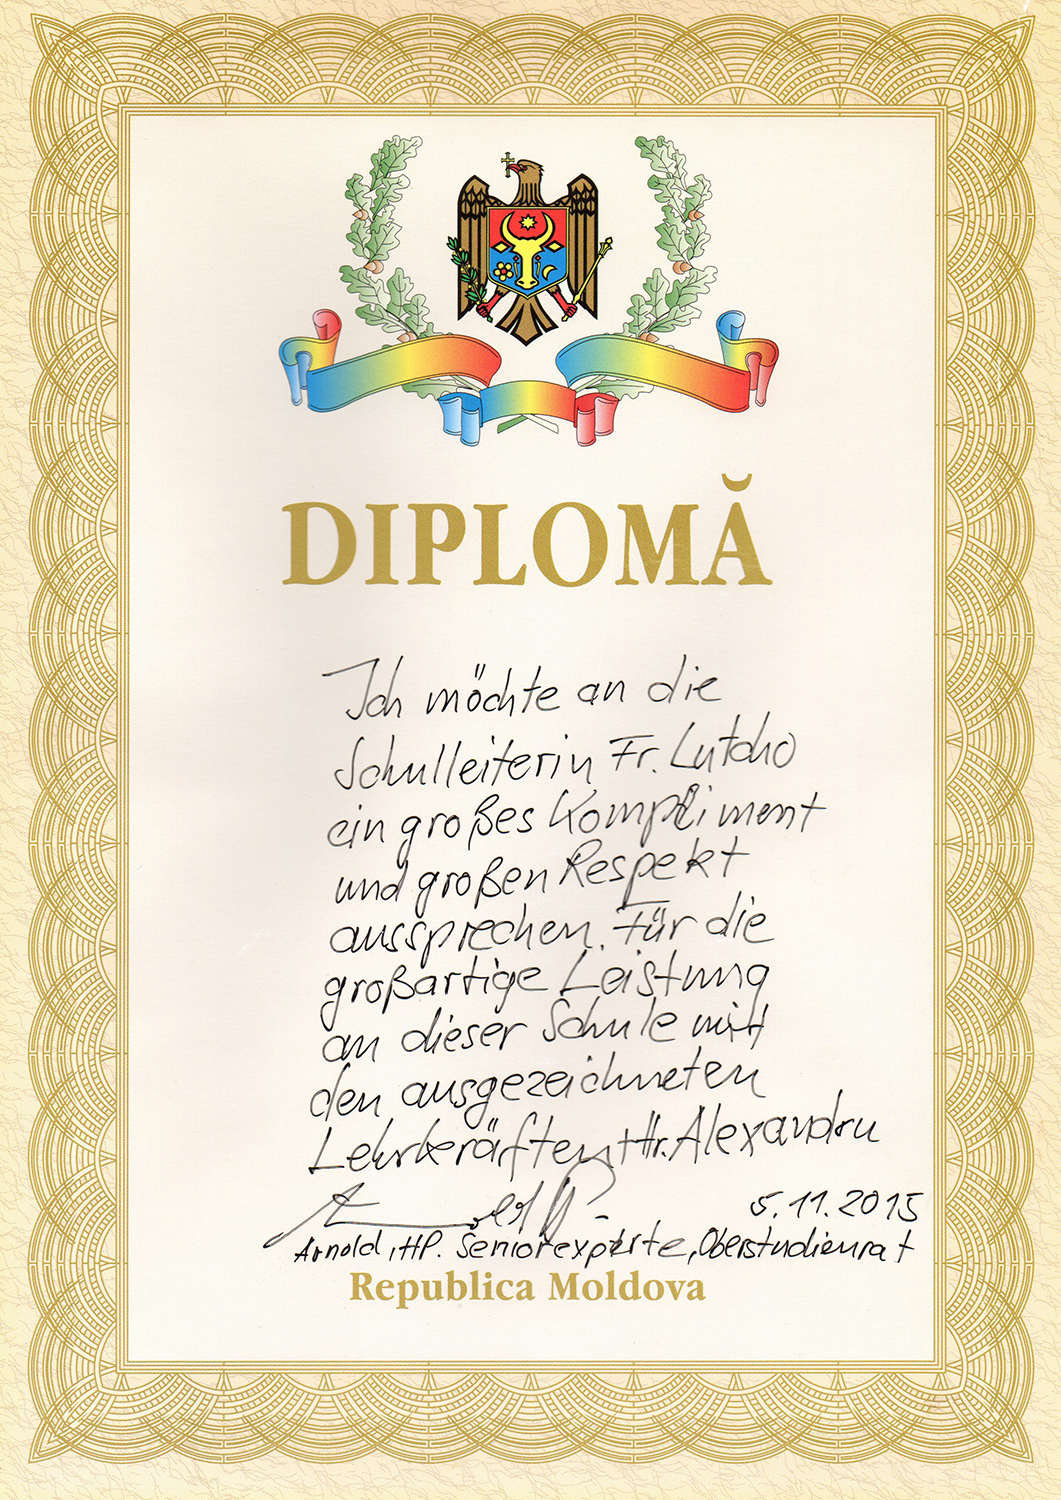 DIPLOMĂ
Ich möchte an die
Schulleiterin Fr. Lutcho
ein großes Kompliment
und großen Respekt
aussprechen. Für die
großartige Leistung
an dieser Schule mit
den ausgezeichneten
Lehrkräften Hr. Alexandru
5.11.2015
Arnold, HP. Seniorexperte, Oberstudienrat
Republica Moldova